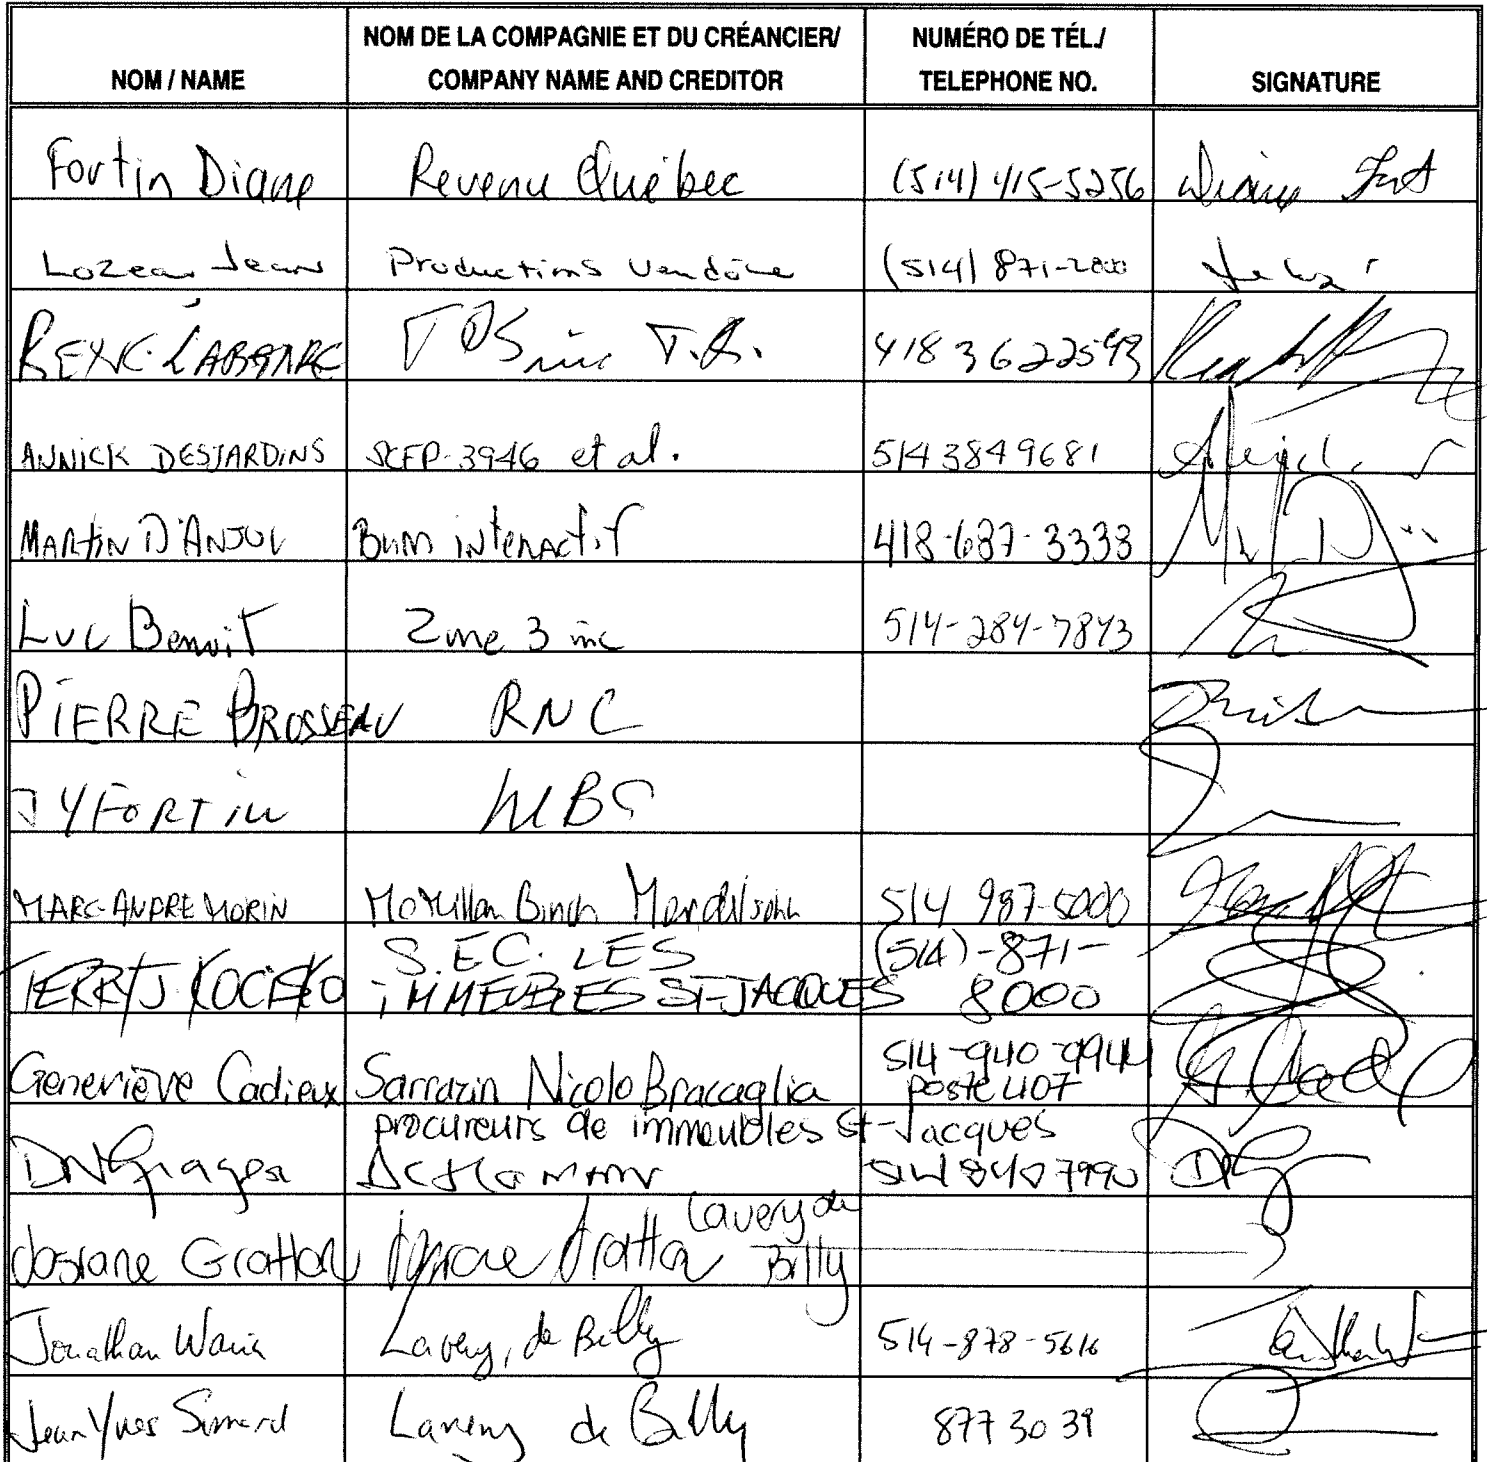 NOM / NAME
NOM DE LA COMPAGNIE ET DU CRÉANCIER/
COMPANY NAME AND CREDITOR
NUMÉRO DE TÉL./
TELEPHONE NO.
SIGNATURE
Fortin Diane Revenu Québec (514) 415-5256
Lozeau Jean Productions Vendôme (514) 871-2000
RENÉ LABBÉ inc 418 3622593
ANNICK DESJARDINS SCFP-3946 et al. 514 3849681
MARTIN D'ANJOU Bum interactif 418-687-3333
Luc Benoit Zone 3 inc 514-284-7873
PIERRE BROSSEAU RNC
JY FORTIN
MARC-ANDRE MORIN McMillan Binch Mendelsohn 514 987-5000
S.E.C. LES (514)-871-
TERRY J. KOCISKO IMMEUBLES ST-JACQUES 8000
514-940-0944
Geneviève Cadieux Sarrazin Nicolo Bracaglia poste 407
procureurs de immeubles St-Jacques
514 840 7990
Lavery de
Josiane Gratton Billy
Jonathan Lavery, de Billy 514-878-5616
Jean Yves Simard Lavery de Billy 877 30 39